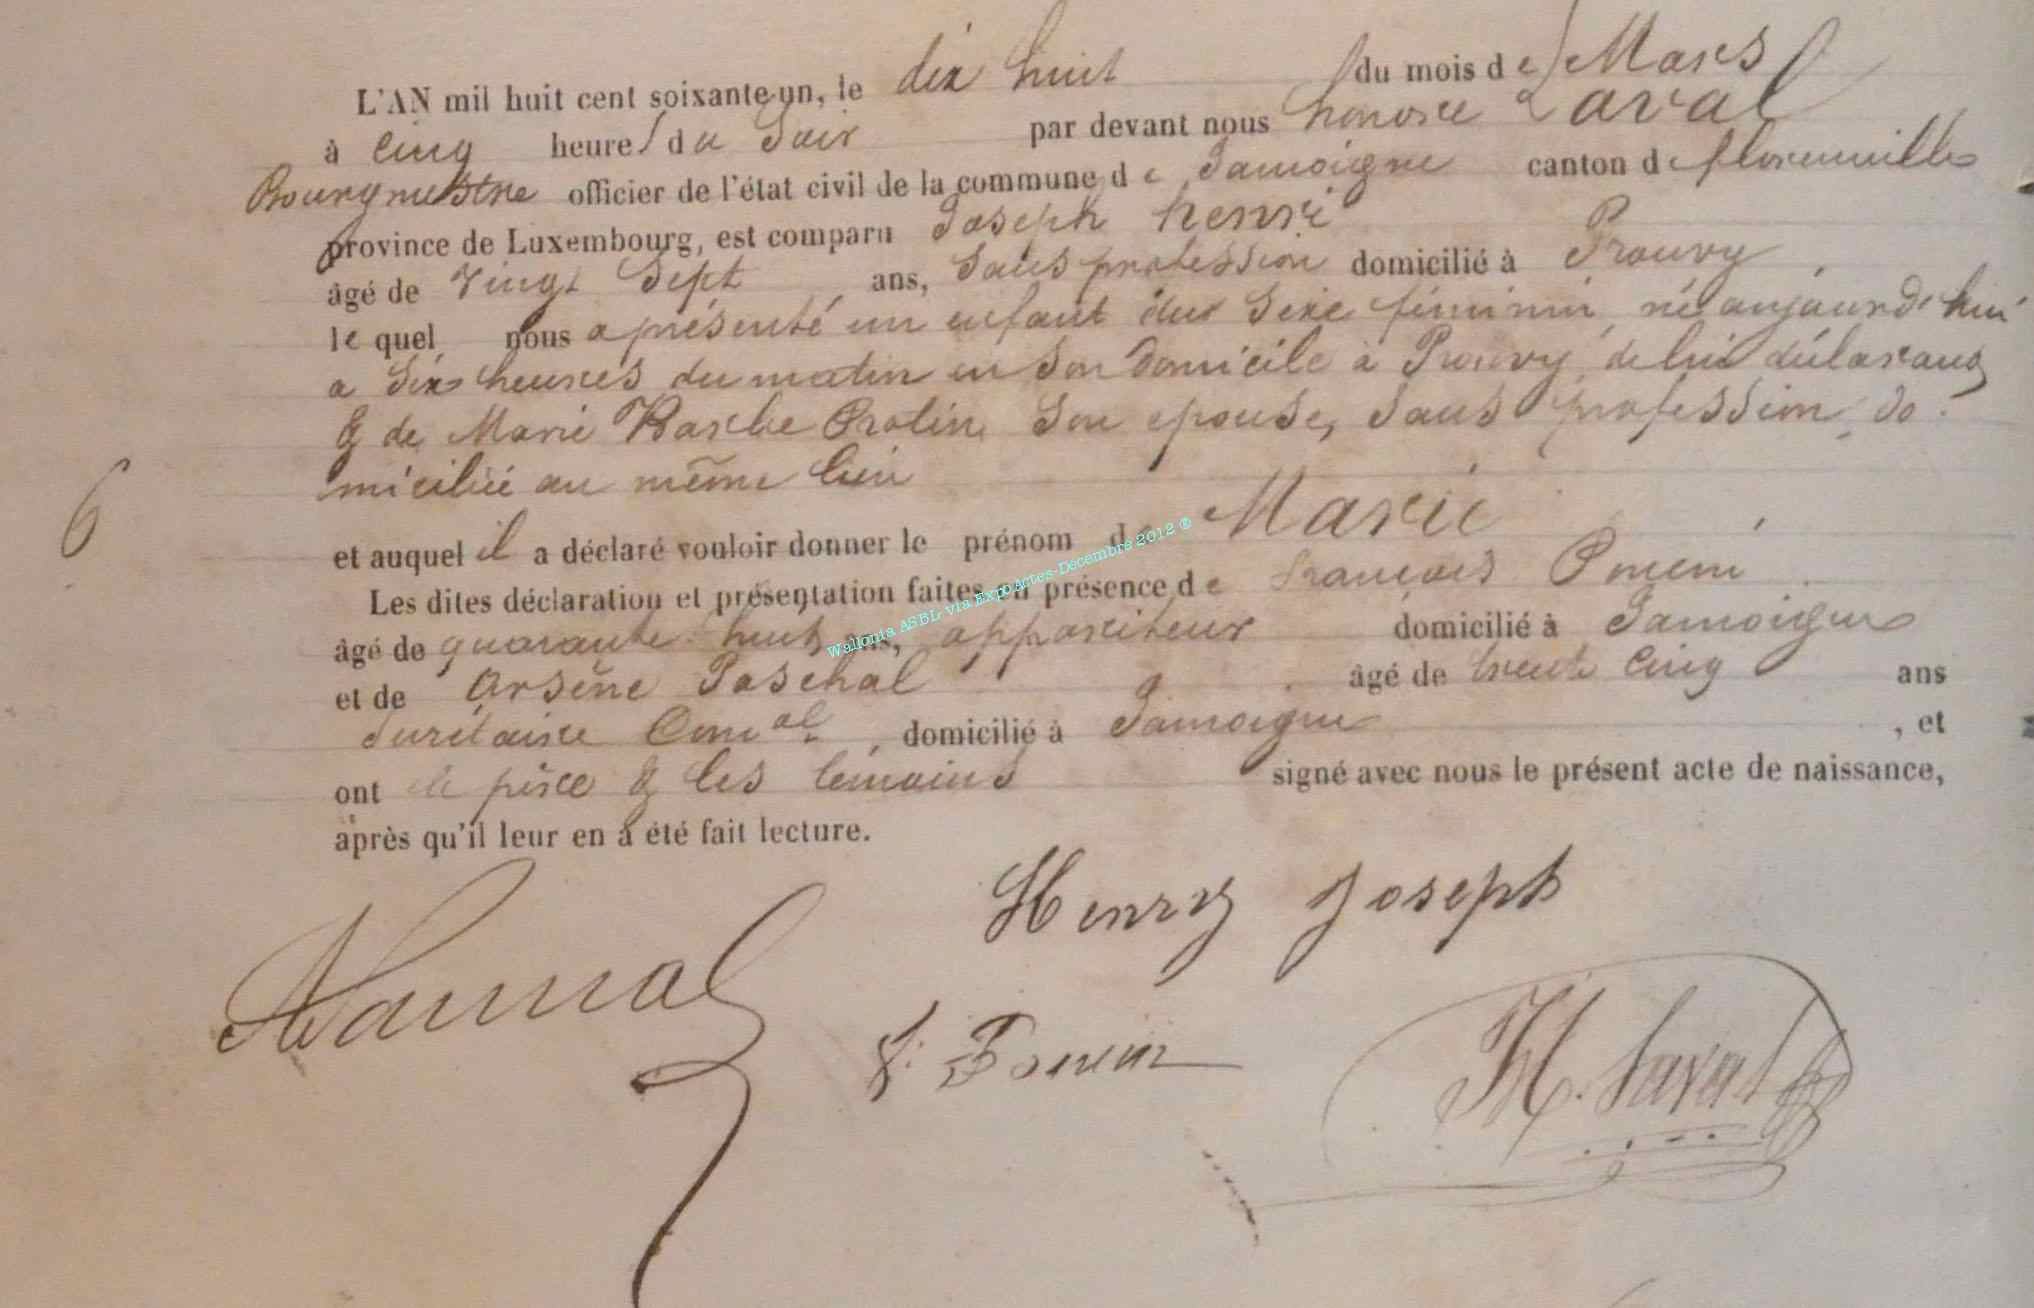 L'AN mil huit cent soixante un, le dix huit du mois de Mars
à cinq heures du Soir par devant nous honoré Laval
Bourgmestre officier de l'état civil de la commune de Jamoigne canton de florenville
province de Luxembourg, est comparu Joseph henri
âgé de vingt Sept ans, Sans profession domicilié à Prouvy
le quel nous a présenté un enfant du Sexe féminin, né aujourd'hui
a Six heures du matin en Son Domicile à Prouvy, de lui déclarant
& de Marie Barbe Protin Son épouse, Sans profession, do-
miciliée au même lieu
6
et auquel il a déclaré vouloir donner le prénom de Marie
Les dites déclaration et présentation faites en présence de françois
âgé de quarante huit ans, appariteur domicilié à Jamoigne
et de Arsène Paschal âgé de trente Cinq ans
Secrétaire Com.al, domicilié à Jamoigne, et
ont le père & les témoins signé avec nous le présent acte de naissance,
après qu'il leur en a été fait lecture.
Henry Joseph
H. Laval
Wallonia ASBL via ExpoActes-Décembre 2012 ®